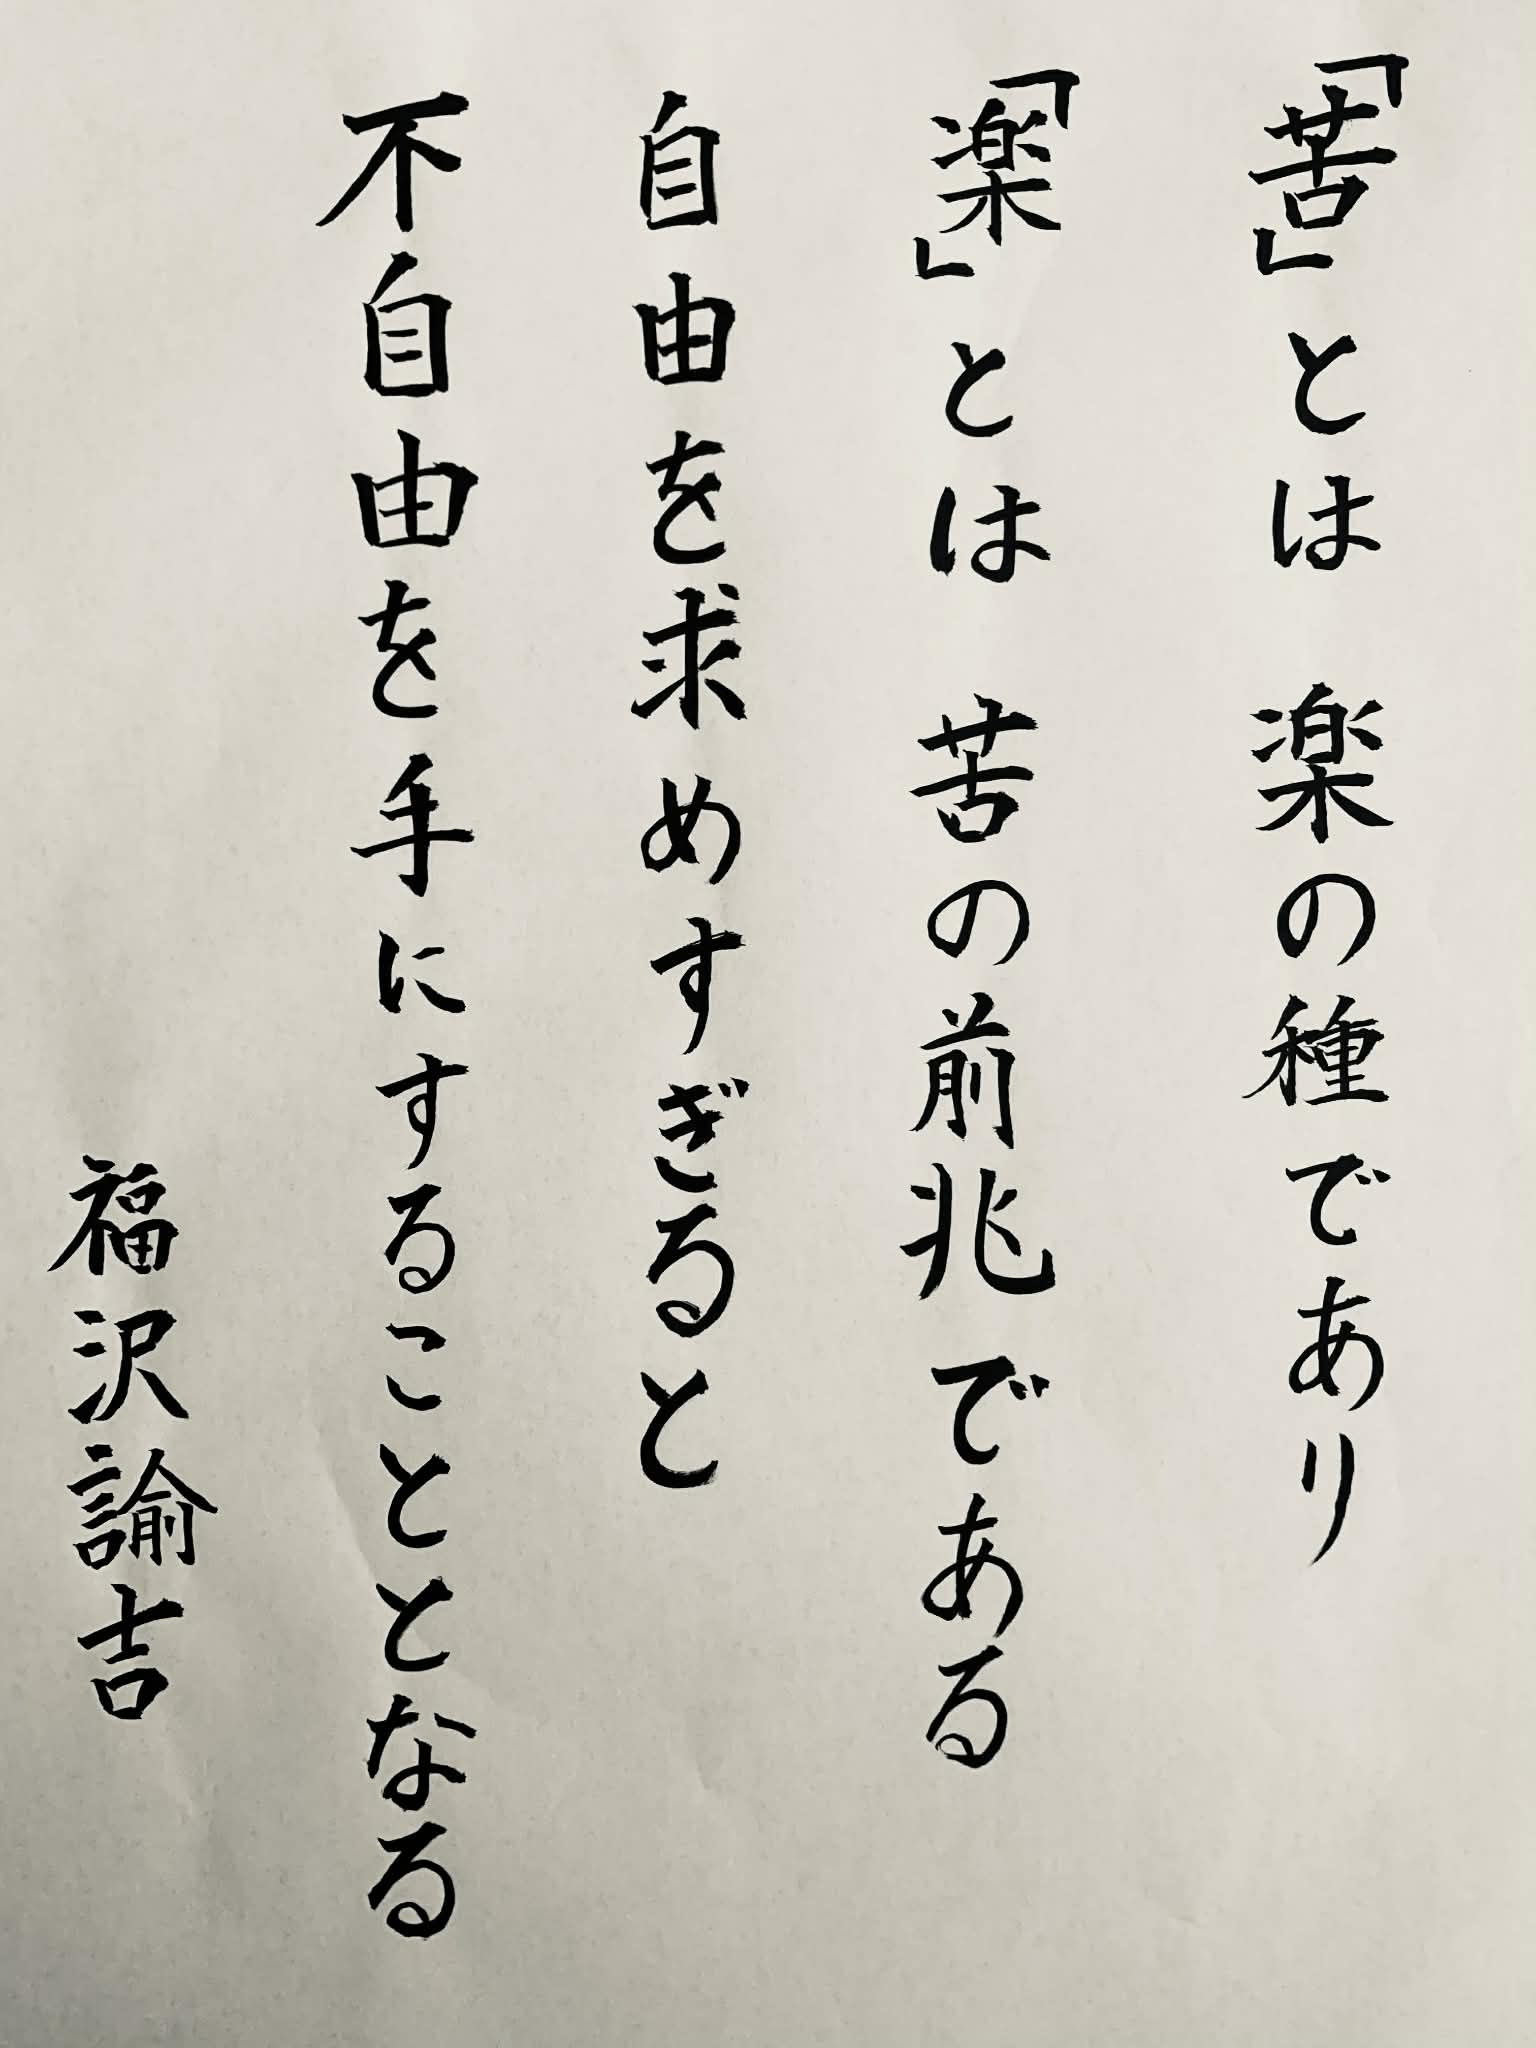 「苦」とは 楽の種であり
「楽」とは 苦の前兆である
自由を求めすぎると
不自由を手にすることとなる
福沢諭吉